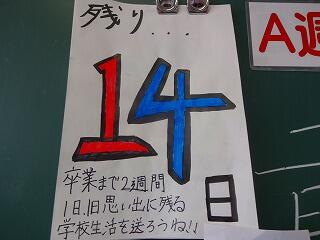 残り...
A週
14
日
卒業まで2週間
1日、1日思い出に残る
学校生活を送ろうね!!